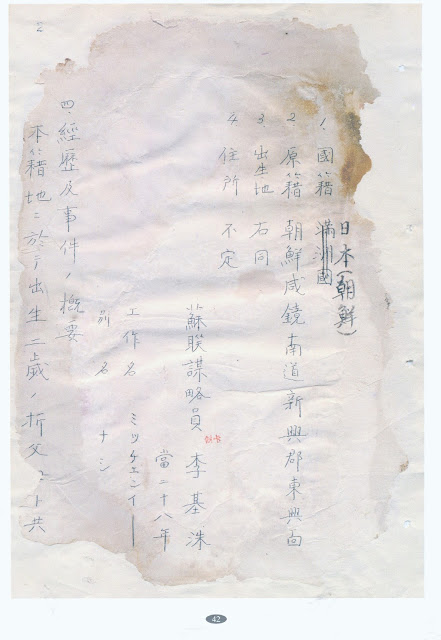 2
日本(朝鮮)
1. 國籍 滿洲國
2. 原籍 朝鮮咸鏡南道新興郡東興面
3. 出生地 右同
4. 住所 不定
蘇联謀略員 李基洙
當二十八年
工作名 ミツチエンイー
別名 ナシ
四、經歷及事件ノ概要
本籍地ニ於テ出生二歳ノ折父ト共
42